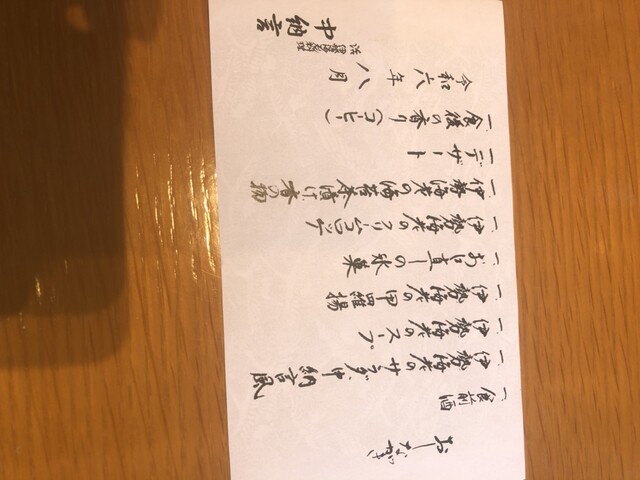 おしながき
一、食前酒
一、伊勢海老のサラダ、中納言風
一、伊勢海老のスープ
一、伊勢海老の甲羅揚
一、お口直しの氷菓
一、伊勢海老のクリームコロッケ
一、伊勢海老の海苔茶漬け、香の物
一、デザート
一、食後の香り（コーヒー）
令和六年八月
活伊勢海老料理
中納言